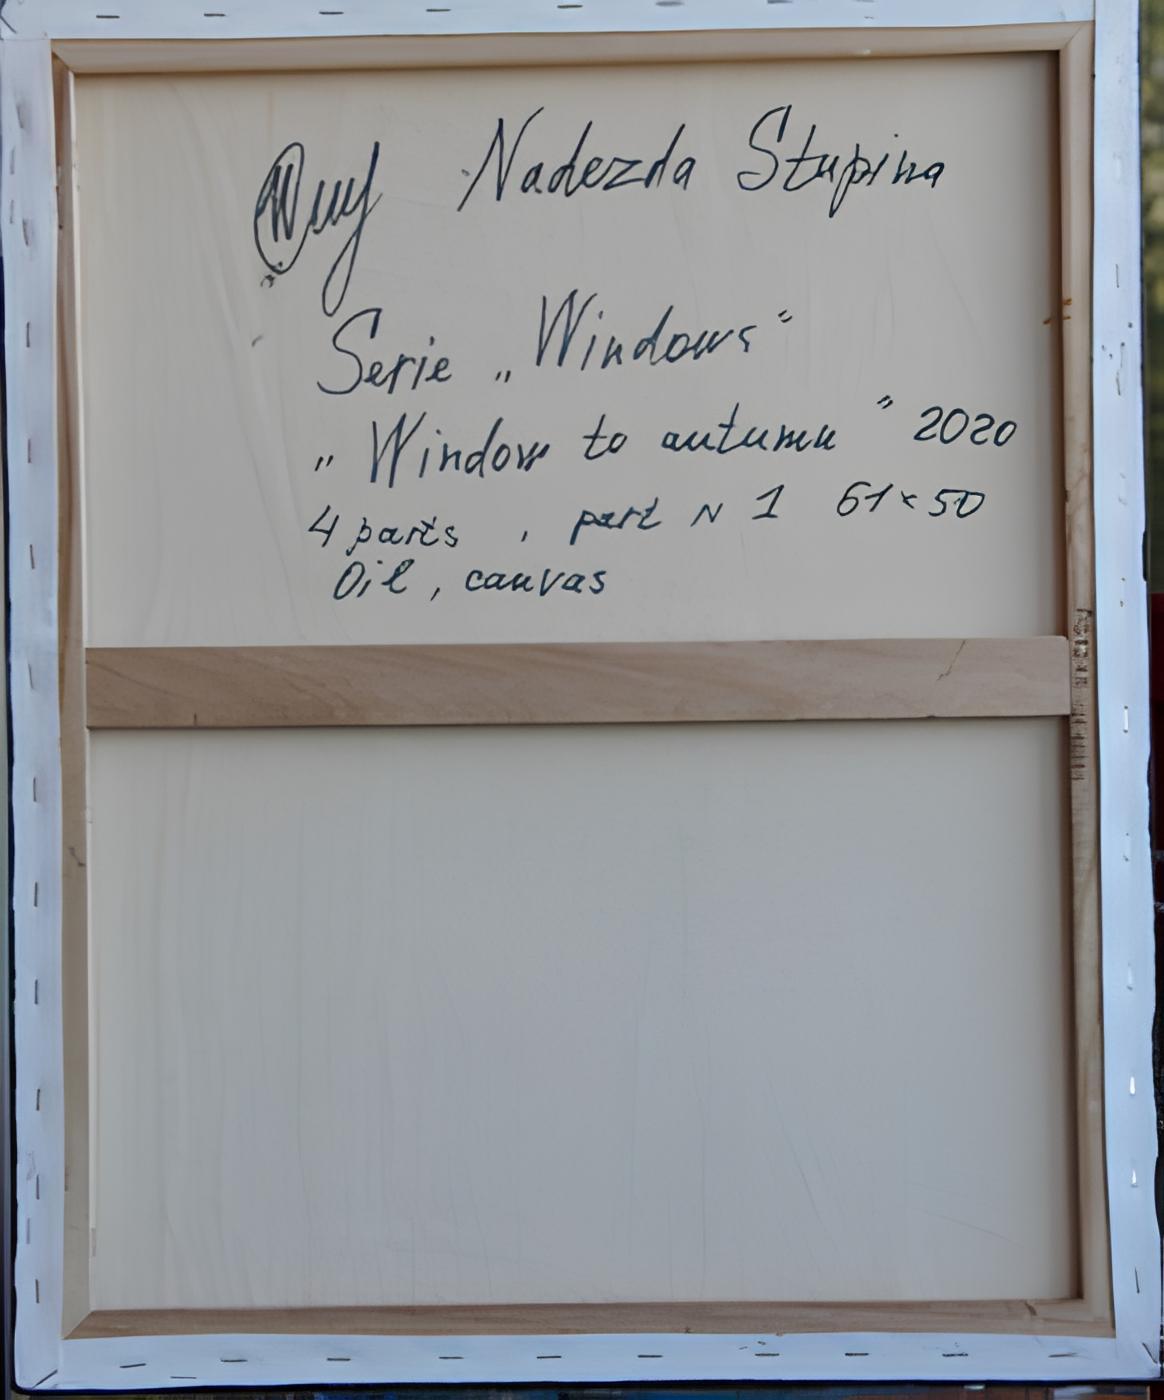 Nadezda Stupina
Serie „Windows“
„Window to autumn“ 2020
4 parts, part N 1 61×50
Oil, canvas